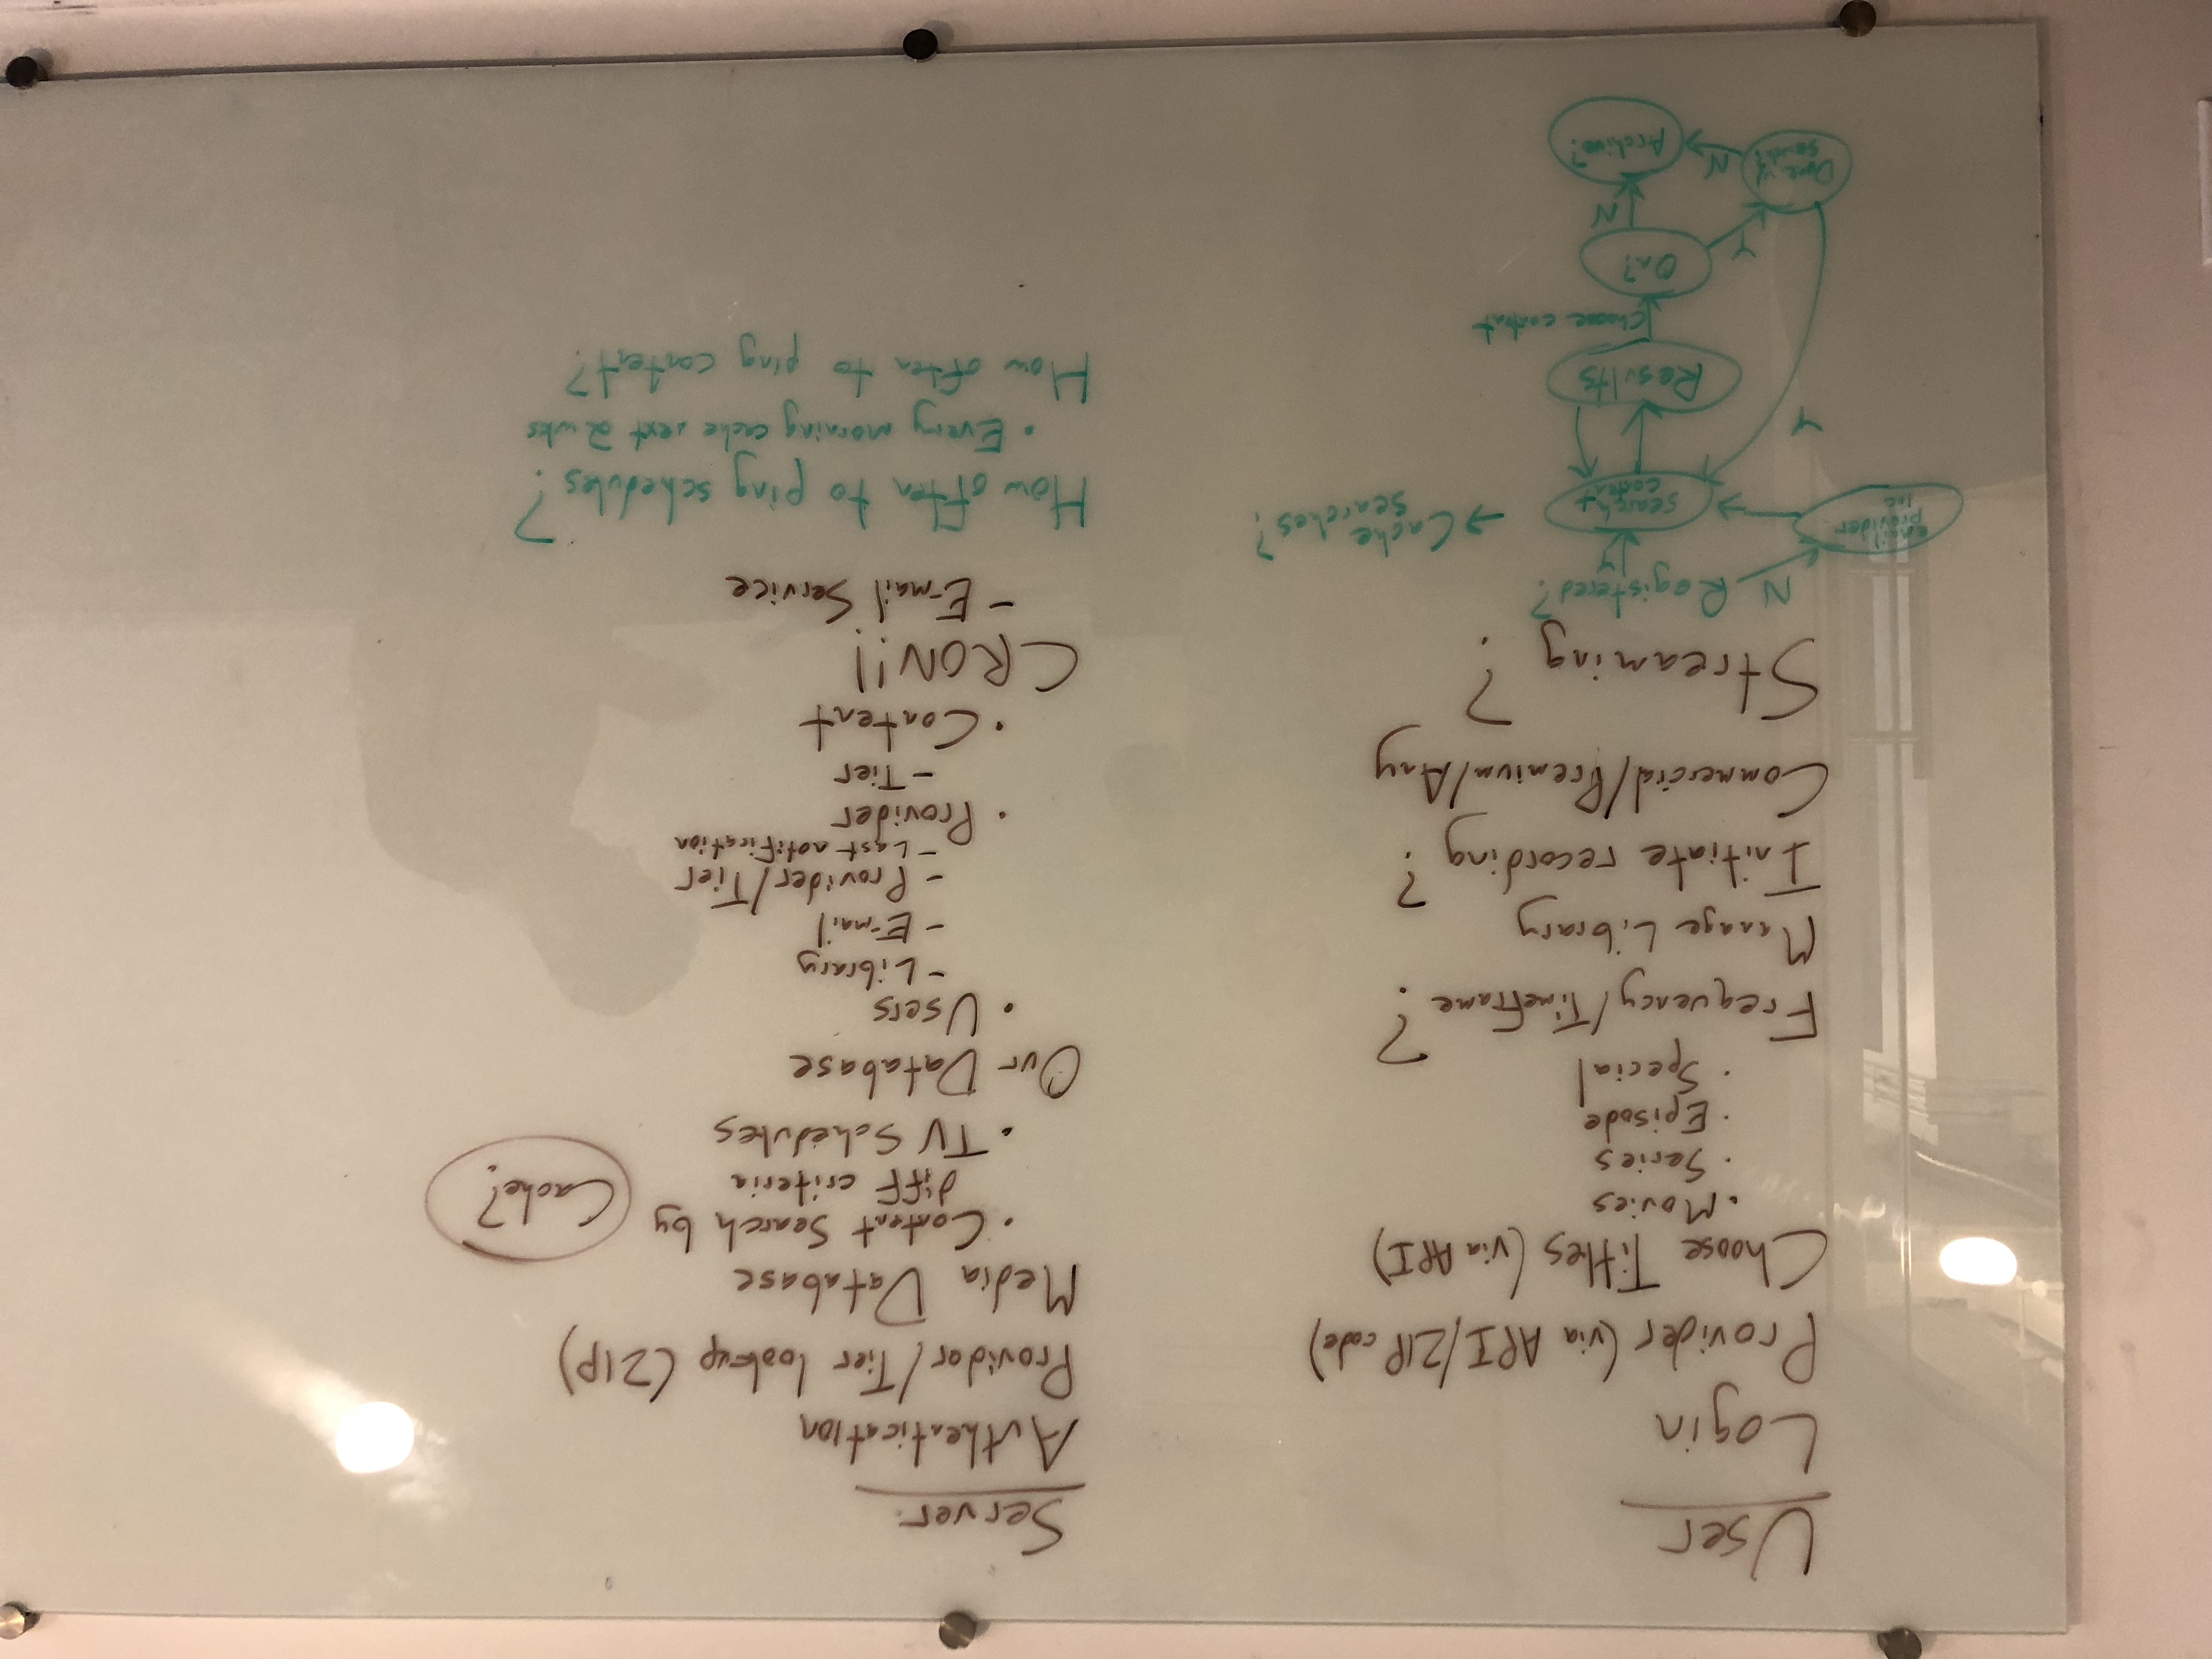 User
Login
Provider (via API/ZIP code)
Choose Titles (via API)
• Movies
• Series
• Episode
• Special
Frequency/Timeframe?
Manage Library
Initiate recording?
Commercial/Premium/Any
Streaming?
N Registered?
Y
email
provider
loc
search
content
→ Cache
searches?
Y
Results
Choose content
On?
Y
N
Done w/
search?
N
Archive?
Server
Authentication
Provider/Tier lookup (ZIP)
Media Database
• Content Search by
diff criteria
Cache?
• TV Schedules
Our Database
• Users
- Library
- E-mail
- Provider/Tier
- Last notification
• Provider
- Tier
• Content
CRON!!
- E-mail Service
How often to ping schedules?
• Every morning cache next 2 wks
How often to ping content?